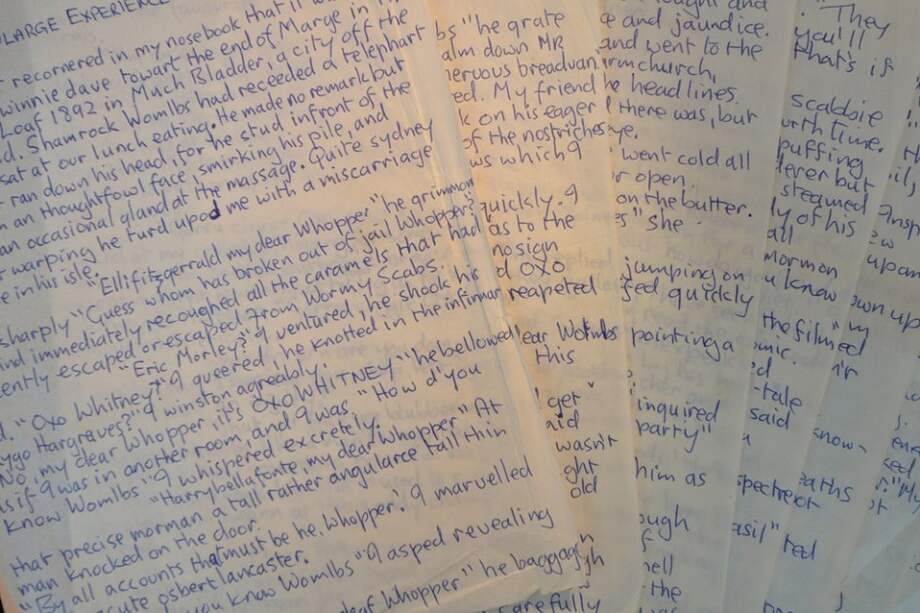 LARGE EXPERIENCE
recornered in my nosebook that it w
winnie dave towart the end of Marge in
Loaf 1892 in Much Bladder, a city off the
d. Shamrock Womlbs had receeded a telephart
sat at our lunch eating. He made no remark but
ran down his head, for he stud infront of the
an thoughtfowl face, smirking his pile, and
an occasional gland at the massage. Quite sydney
warping he turd upod me with a miscarriage
e in his isle.
"Ellifitzgerrald my dear Whopper" he grimmon
sharply "Guess whom has broken out of jail Whopper?
ind immediately recoughed all the caramels that had
cently escaped or escaped from Wormy Scabs.
"Eric Morley?" I ventured, he shook his
d. "Oxo Whitney?" I queered, he knotted in the infirmar
ygo Hargraves?" I winston agreably.
No, my dear Whopper, it's OXO WHITNEY" he bellowed
as if I was in another room, and I was. "How d'you
know Womlbs" I whispered excretely.
"Harrybellafonte, my dear Whopper." At
that precise morman a tall rather angularce tall thin
man knocked on the door.
"By all accounts that must be he, Whopper." I marvelled
acute osbert lancaster.
you know Womlbs" I asped revealing
deaf Whopper" he baggage
bs "he grate
alm down MR
nervous breadvan
ed. My friend
k on his eager
of the nostriches
ws which I
quickly. I
as to the
no sign
d OXO
reapeted
ear Womlbs
this
'get"
nid
wasn't
ght
old
carefully
and
e and jaundice.
and went to the
rmchurch,
he head lines.
there was, but
ye.
went cold all
r open
on the butter.
es" she
jumping on
sed quickly
pointing a
inquired
party"
him as
ough
f
nell
the
scabbie
urth time.
puffing
derer but
steamed
ly of his
all
mormon
u know
the filmed
omic.
d
-tale
said
spectreot
asil"
red
"They
you'll
that's if
Insp
ew
upan
own up
" my
n'r
know-
eaths
ot